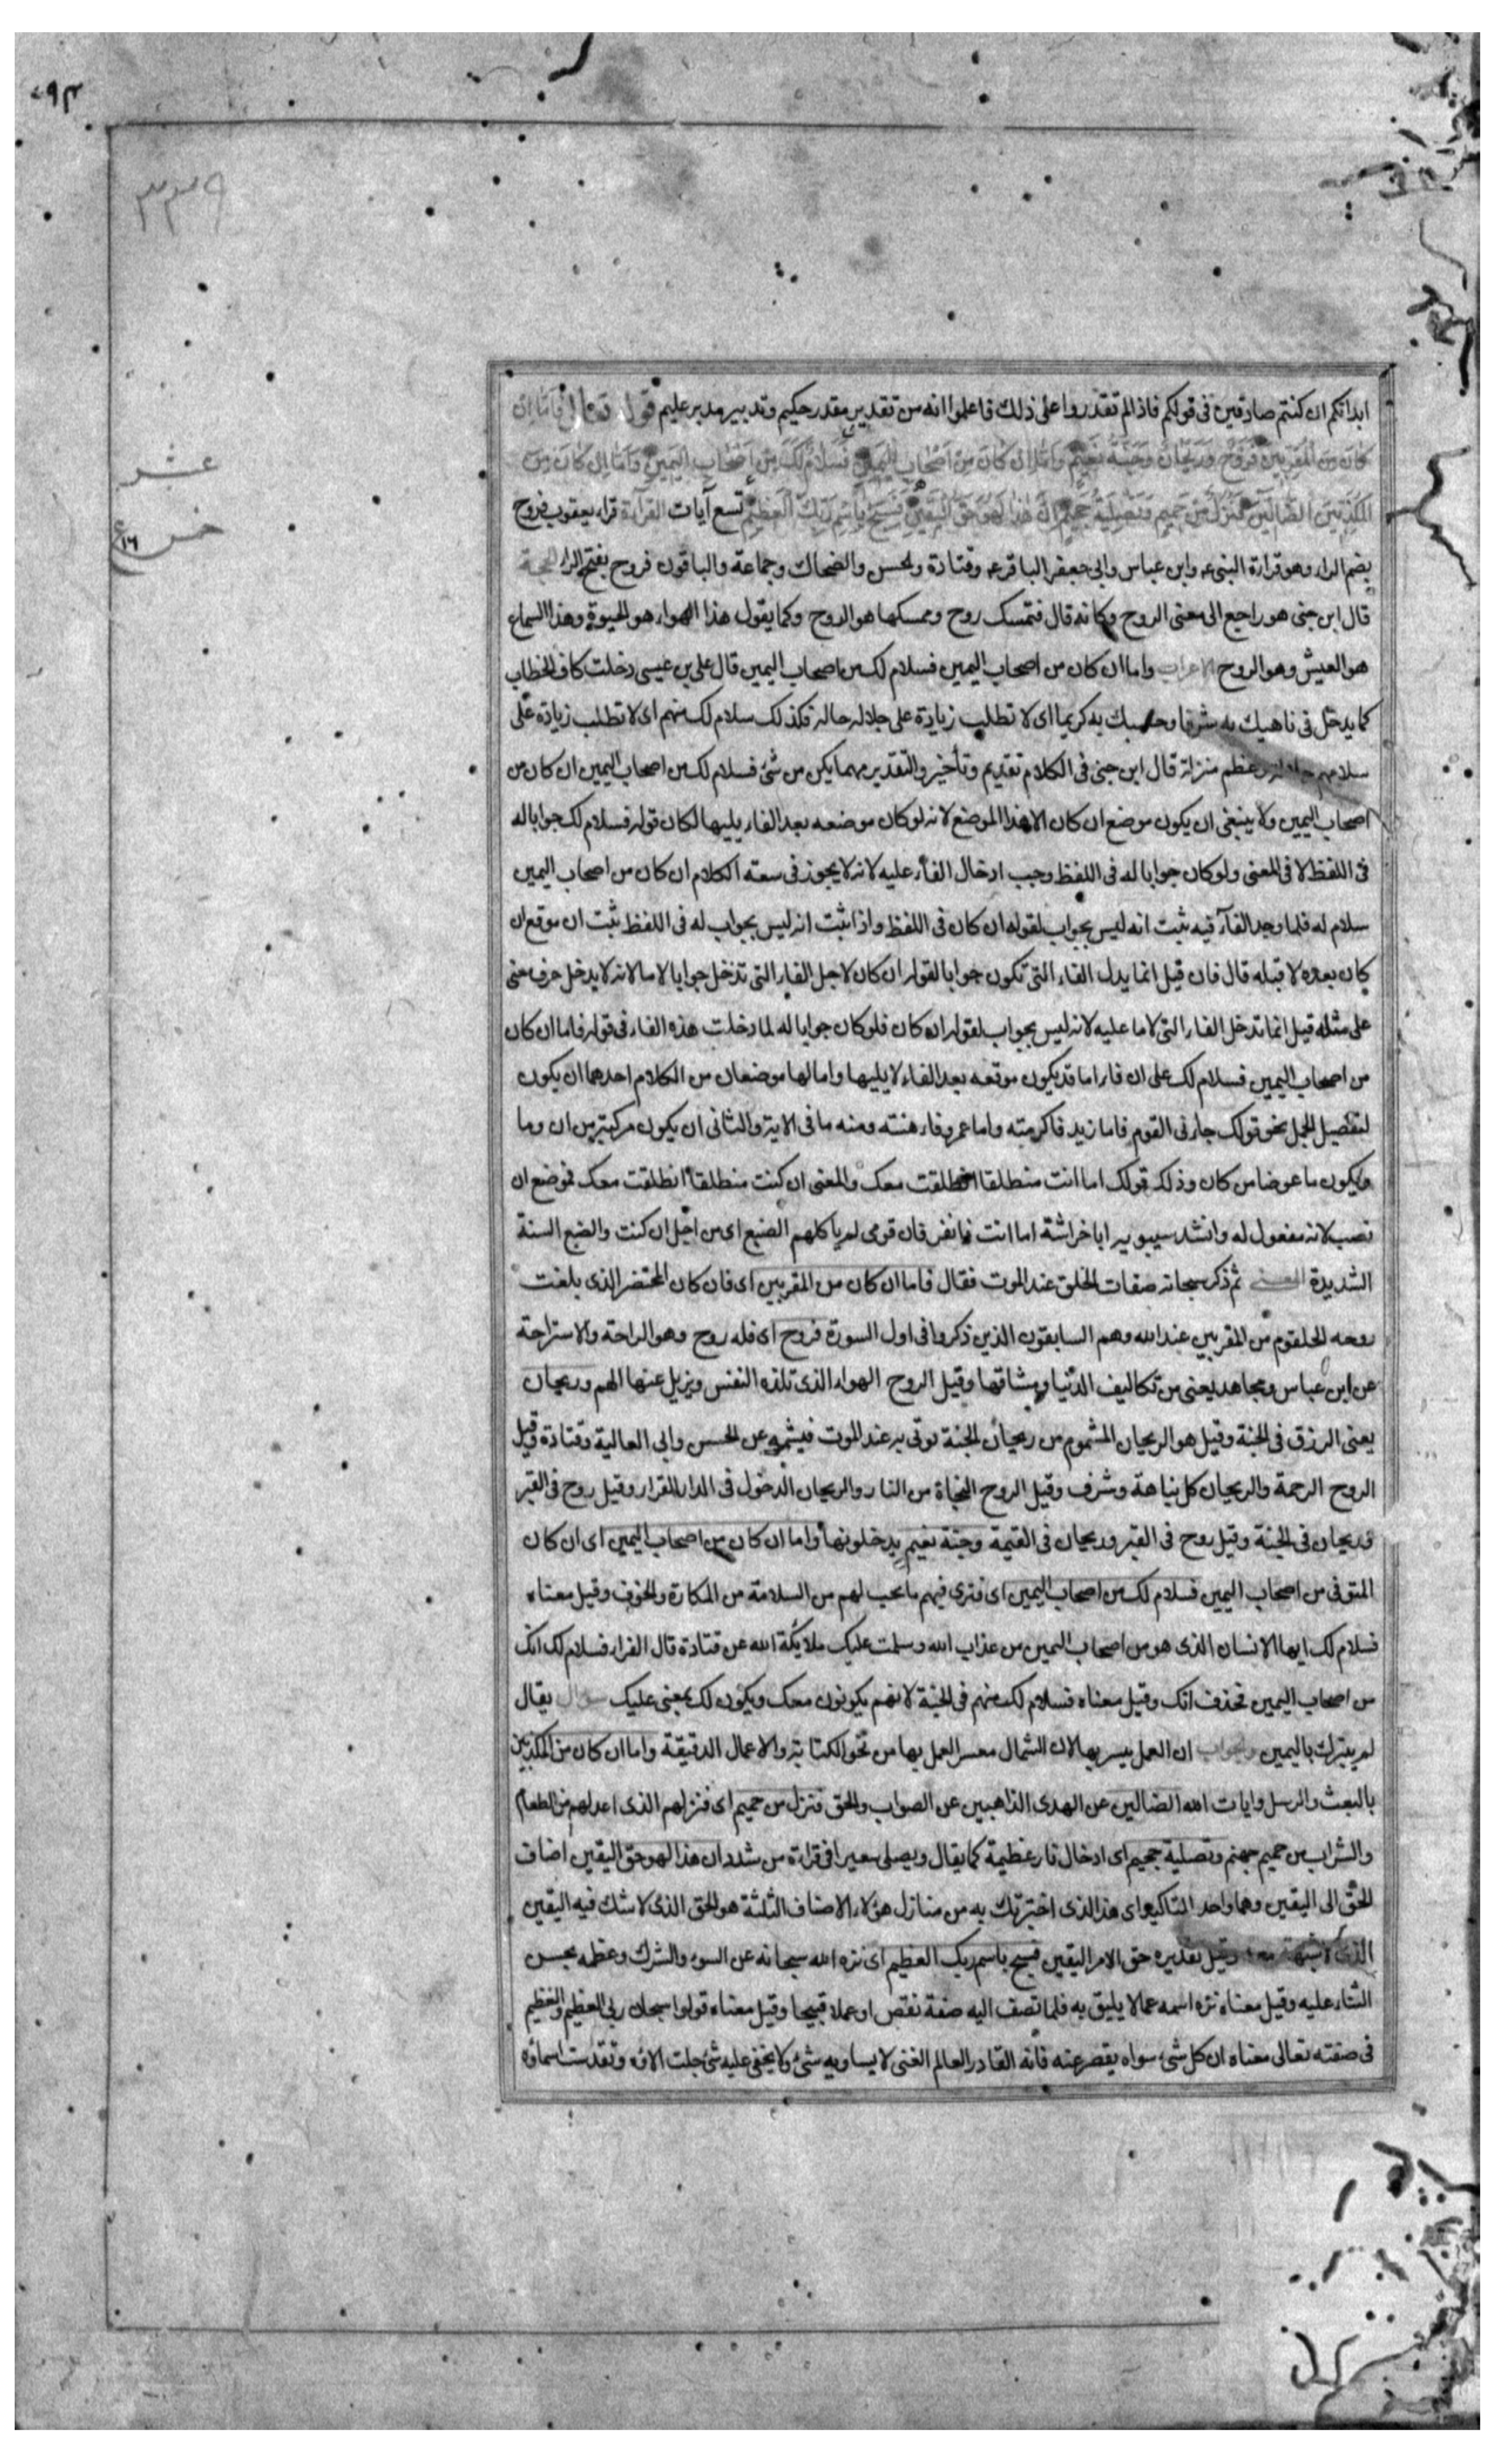 ٧٩٣
٣٣٩
عشر
خمس
١٦
ابدانكم ان كنتم صادقين فى قولكم فاذا لم تقدروا على ذلك فاعلموا انه من تقدير مقدر حكيم وتدبير مدبر عليم قوله تعالى فاما ان
كان من المقربين فروح وريحان وجنة نعيم واما ان كان من اصحاب اليمين فسلام لك من اصحاب اليمين واما ان كان من
المكذبين الضالين فنزل من حميم وتصلية جحيم ان هذا لهو حق اليقين فسبح باسم ربك العظيم تسع آيات القرآءة قراء يعقوب فروح
بضم الراء وهو قراءة النبى ع وابن عباس وابى جعفر الباقر ع وقتادة والحسن والضحاك وجماعة والباقون فروح بفتح الراء الحجة
قال ابن جنى هو راجع الى معنى الروح وكانه قال فتمسك روح وممسكها هو الروح وكما يقول هذا الهواء هو الحيوة وهذا السماع
هو العيش وهو الروح الاعراب واما ان كان من اصحاب اليمين فسلام لك من اصحاب اليمين قال على بن عيسى دخلت كاف الخطاب
كما يدخل فى ناهيك به شرفا وحسبك به كريما اى لا تطلب زيادة على جلاله حاله فكذلك سلام لك منهم اى لا تطلب زيادة على
سلامهم جلالة وعظم منزلة قال ابن جنى فى الكلام تقديم وتأخير والتقدير مهما يكن من شئ فسلام لك من اصحاب اليمين ان كان من
اصحاب اليمين ولا ينبغى ان يكون موضع ان كان الا هذا الموضع لانه لو كان موضعه بعد الفاء يليها لكان قوله فسلام لك جوابا له
فى اللفظ لا فى المعنى ولو كان جوابا له فى اللفظ وجب ادخال الفآء عليه لانه لا يجوز فى سعة الكلام ان كان من اصحاب اليمين
سلام له فلما وجد الفآء فيه ثبت انه ليس بجواب لقوله ان كان فى اللفظ واذا ثبت انه ليس بجواب له فى اللفظ ثبت ان موقع ان
كان بعده لا قبله قال فان قيل انما يدل الفاء التى تكون جوابا لقوله ان كان لاجل الفاء التى تدخل جوابا لاما لانه لا يدخل حرف معنى
على مثله قيل انما تدخل الفاء التى لاما عليه لانه ليس بجواب لقوله ان كان فلو كان جوابا له لما دخلت هذه الفاء فى قوله فاما ان كان
من اصحاب اليمين فسلام لك على ان فاء اما قد يكون موقعه بعد الفاء لا يليها واما لها موضعان من الكلام احدهما ان يكون
لتفصيل الجمل نحو قولك جاءنى القوم فاما زيد فاكرمته واما عمرو فاهنته ومنه ما فى الاية والثانى ان يكون مركبة من ان وما
ويكون ما عوضا من كان وذلك قولك اما انت منطلقا انطلقت معك والمعنى ان كنت منطلقا انطلقت معك فموضع ان
نصب لانه مفعول له وانشد سيبويه اباخراشة اما انت ذا نفر فان قومى لم ياكلهم الضبع اى من اجل ان كنت والضبع السنة
الشديدة المعنى ثم ذكر سبحانه صفات الخلق عند الموت فقال فاما ان كان من المقربين اى فان كان المحتضر الذى بلغت
روحه الحلقوم من المقربين عند الله وهم السابقون الذين ذكروا فى اول السورة فروح اى فله روح وهو الراحة والاستراحة
عن ابن عباس ومجاهد يعنى من تكاليف الدنيا ومشاقها وقيل الروح الهواء الذى تلذه النفس ويزيل عنها الهم وريحان
يعنى الرزق فى الجنة وقيل هو الريحان المشموم من ريحان الجنة يوتى به عند الموت فيشمه عن الحسن وابى العالية وقتادة وقيل
الروح الرحمة والريحان كل نباهة وشرف وقيل الروح النجاة من النار والريحان الدخول فى الدار القرار وقيل روح فى القبر
وريحان فى الجنة وقيل روح فى القبر وريحان فى القيمة وجنة نعيم يدخلونها واما ان كان من اصحاب اليمين اى ان كان
المتوفى من اصحاب اليمين فسلام لك من اصحاب اليمين اى فترى فيهم ما تحب لهم من السلامة من المكارة والخوف وقيل معناه
فسلام لك ايها الانسان الذى هو من اصحاب اليمين من عذاب الله وسلمت عليك ملايكة الله عن قتادة قال الفراء فسلام لك انك
من اصحاب اليمين فحذف انك وقيل معناه فسلام لك منهم فى الجنة لانهم يكونون معك ويكون لك بمعنى عليك سؤال يقال
لم يتبرك باليمين والجواب ان العمل يسير بها لان الشمال معسر العمل بها من نحو الكتابة والاعمال الدقيقة واما ان كان من المكذبين
بالبعث والرسل وايات الله الضالين عن الهدى الذاهبين عن الصواب والحق فنزل من حميم اى فنزلهم الذى اعد لهم من الطعام
والشراب من حميم جهنم وتصلية جحيم اى ادخال نار عظيمة كما يقال ويصلى سعيرا فى قراءة من شدد ان هذا لهو حق اليقين اضاف
الحق الى اليقين وهما واحد للتاكيد اى هذا الذى اخبرتك به من منازل هؤلاء الاصناف الثلثة هو الحق الذى لا شك فيه اليقين
الذى لا شبهة معه وقيل تقديره حق الامر اليقين فسبح باسم ربك العظيم اى نزه الله سبحانه عن السوء والشرك وعظمه بحسن
الثناء عليه وقيل معناه نزه اسمه عما لا يليق به فلما تصف اليه صفة نقص او عملا قبيحا وقيل معناه قولوا سبحان ربى العظيم والعظيم
فى صفته تعالى معناه ان كل شئ سواه يقصر عنه فانه القادر العالم الغنى لا يساويه شئ ولا يخفى عليه شئ جلت الاؤه وتقدست اسماؤه